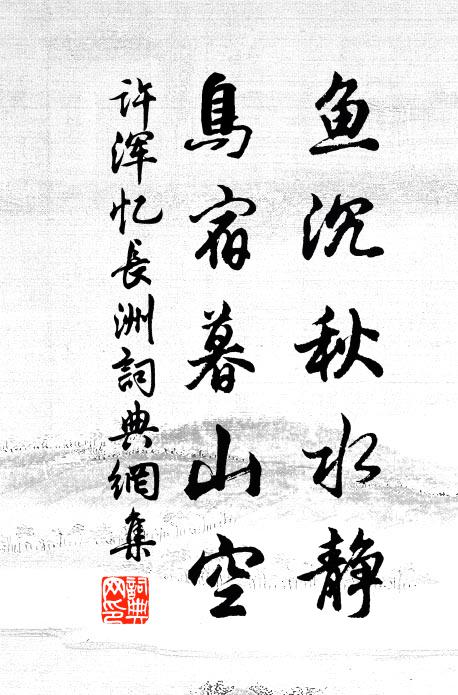 鱼沉秋水静
鳥宿暮山空
许浑忆長洲詞典網集
詞典网印